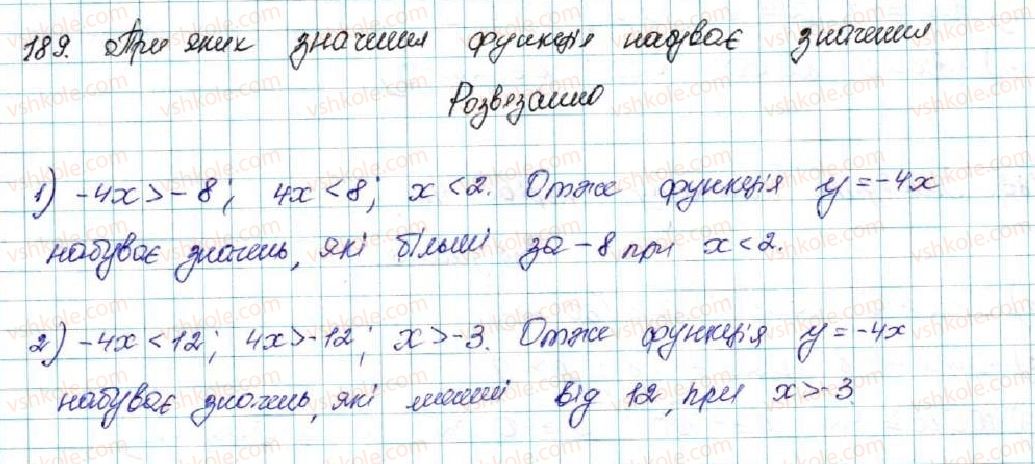 189. При яких значення функція набуває значення
Розвязанно
1) -4x>-8; 4x<8; x<2. Отже функція y=-4x
набуває значень, які більші за -8 при x<2.
2) -4x<12; 4x>-12; x>-3. Отже функція y=-4x
набуває значень, які менші від 12, при x>-3